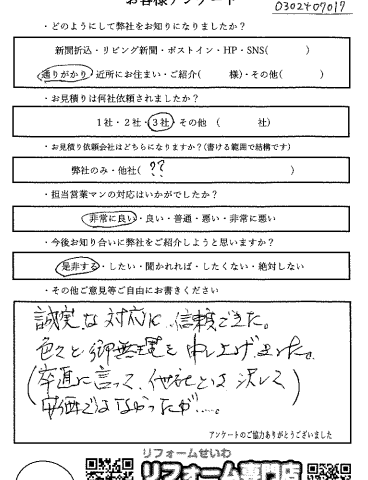 お客様アンケート
0302407017
・どのようにして弊社をお知りになりましたか?
新聞折込・リビング新聞・ポストイン・HP・SNS( )
通りがかり・近所にお住まい・ご紹介( 様)・その他( )
・お見積りは何社依頼されましたか?
1社・2社・3社・その他 ( 社)
・お見積り依頼会社はどちらになりますか?(書ける範囲で結構です)
弊社のみ・他社( ?? )
・担当営業マンの対応はいかがでしたか?
非常に良い・良い・普通・悪い・非常に悪い
・今後お知り合いに弊社をご紹介しようと思いますか?
是非する・したい・聞かれれば・したくない・絶対しない
・その他ご意見等ご自由にお書きください
誠実な対応に、信頼できた。
色々と御無理を申し上げました。
(卒直に言って、他社とは決して)
安価ではなかったが……。
アンケートのご協力ありがとうございました
リフォームせいわ
リフォーム専門店